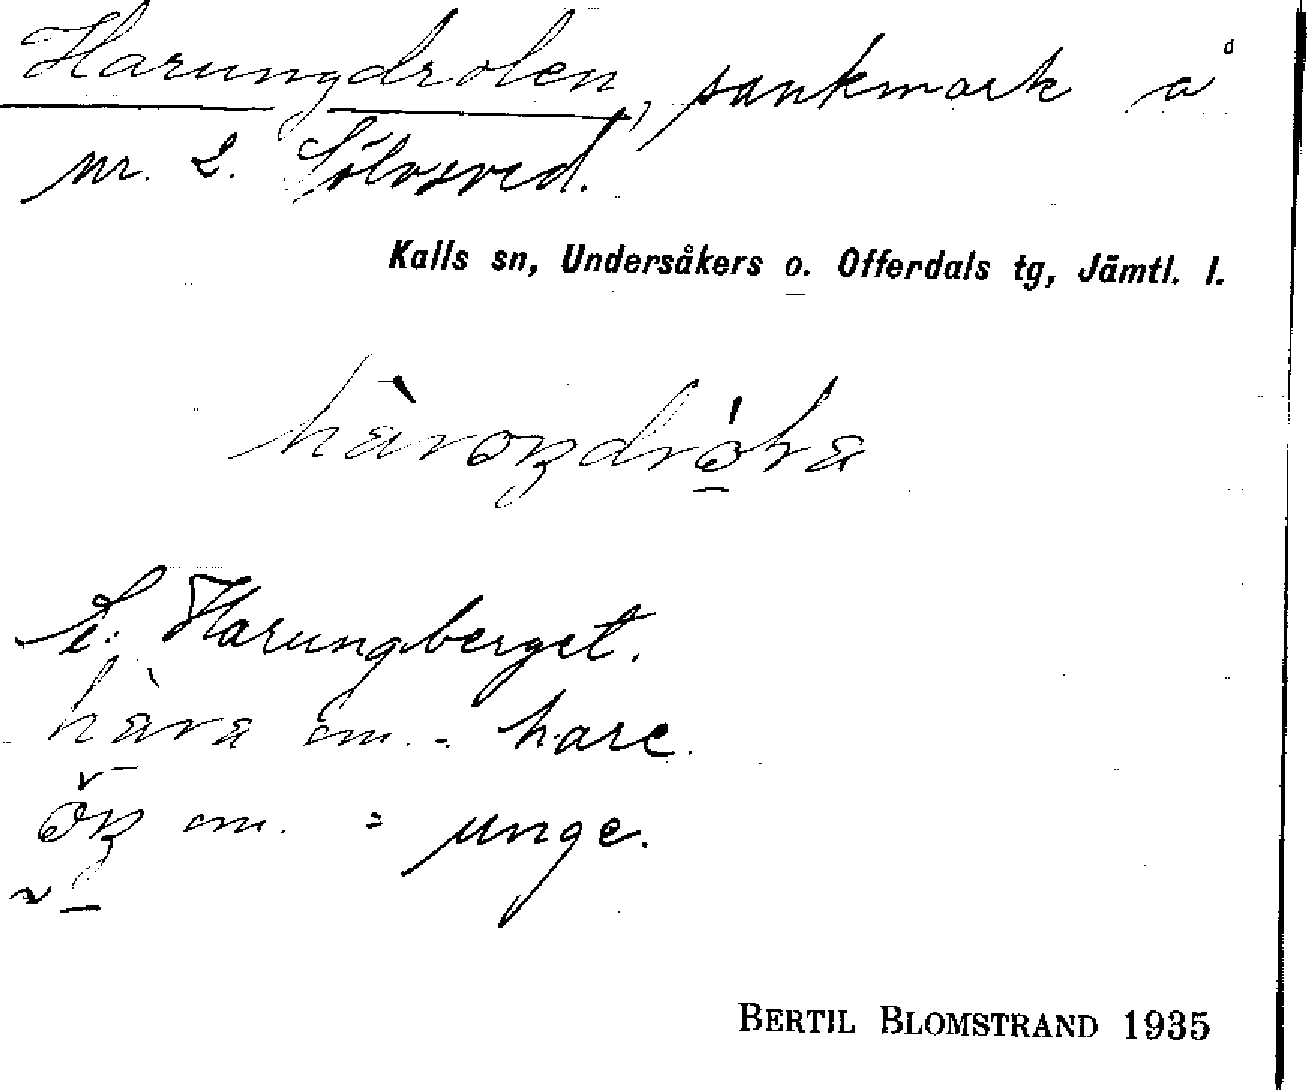 Harungdrolen, sankmark å
nr. 2. Sölvsved.
Kalls sn, Undersåkers o. Offerdals tg, Jämtl. l.
S: Harungberget.
hàra m. = hare.
m. = unge.
BERTIL BLOMSTRAND 1935